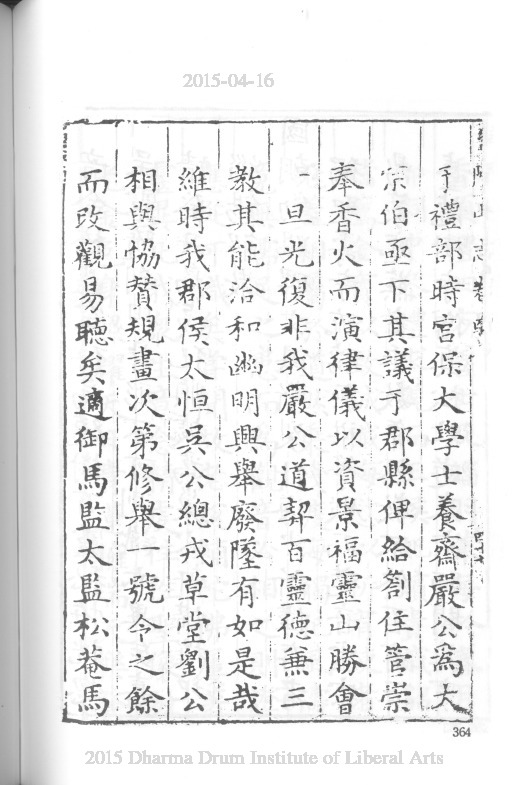 2015-04-16
于禮部時宮保大學士養齋嚴公爲大
宗伯亟下其議于郡縣俾給劄住管崇
奉香火而演律儀以資景福靈山勝會
一旦光復非我嚴公道契百靈德兼三
教其能洽和幽明興舉廢墜有如是哉
維時我郡侯太恒吳公總戎草堂劉公
相與恊贊規畫次第修舉一號令之餘
而改觀易聽矣適御馬監太監松菴馬
364
2015 Dharma Drum Institute of Liberal Arts